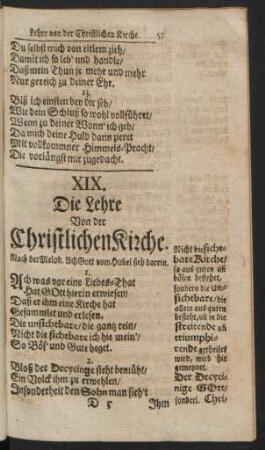 Lehre von der Christlichen Kirche. 57
Du selbst mich von eitlem zieh/
Damit ich so leb' und handle/
Daß mein Thun je mehr und mehr
Nur gereich zu deiner Ehr.
13.
Biß ich einsten bey dir seh/
Wie dein Schluß so wohl vollführet/
Wenn zu deiner Wonn' ich geh/
Da mich deine Huld dann zieret
Mit vollkommner Himmels-Pracht/
Die vorlängst mir zugedacht.
XIX.
Die Lehre
Von der
Christlichen Kirche.
Nach der Melod. Ach Gott vom Himel sieh darein.
1.
Ach was vor eine Liebes-That
Hat GOtt hierin erwiesen/
Daß er ihm eine Kirche hat
Gesammlet und erlesen.
Die unsichtbare/die gantz rein/
Nicht die sichtbare ich hie mein'/
So Böß' und Gute heget.
2.
Bloß der Dreyeinge steht bemüht/
Ein Volck ihm zu erwehlen/
Insonderheit den Sohn man sieh't
D 5 Ihm
Nicht die sichtbare Kirche/
so aus guten uñ
bösen bestehet,
sondern die unsichtbare/die
allein aus guten
bestehet, uñ in die
streitende uñ
triumphirende
getheilet
wird, wird hie
gemeynet.
Der Dreyeinige GOtt/
sonderl. Chri-